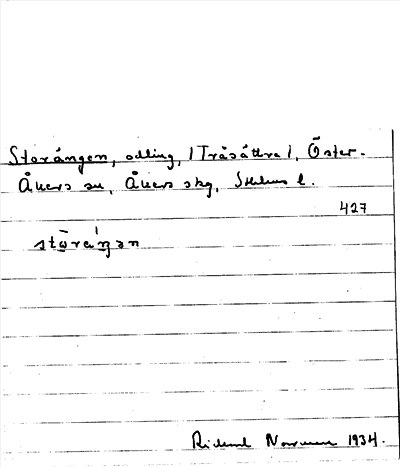 Storängen, odling, (Träsättra), Öster-
Åkers sn, Åkers skg, Sthlms l.
427
stω̄raŋən
Rickard Norrman 1934.